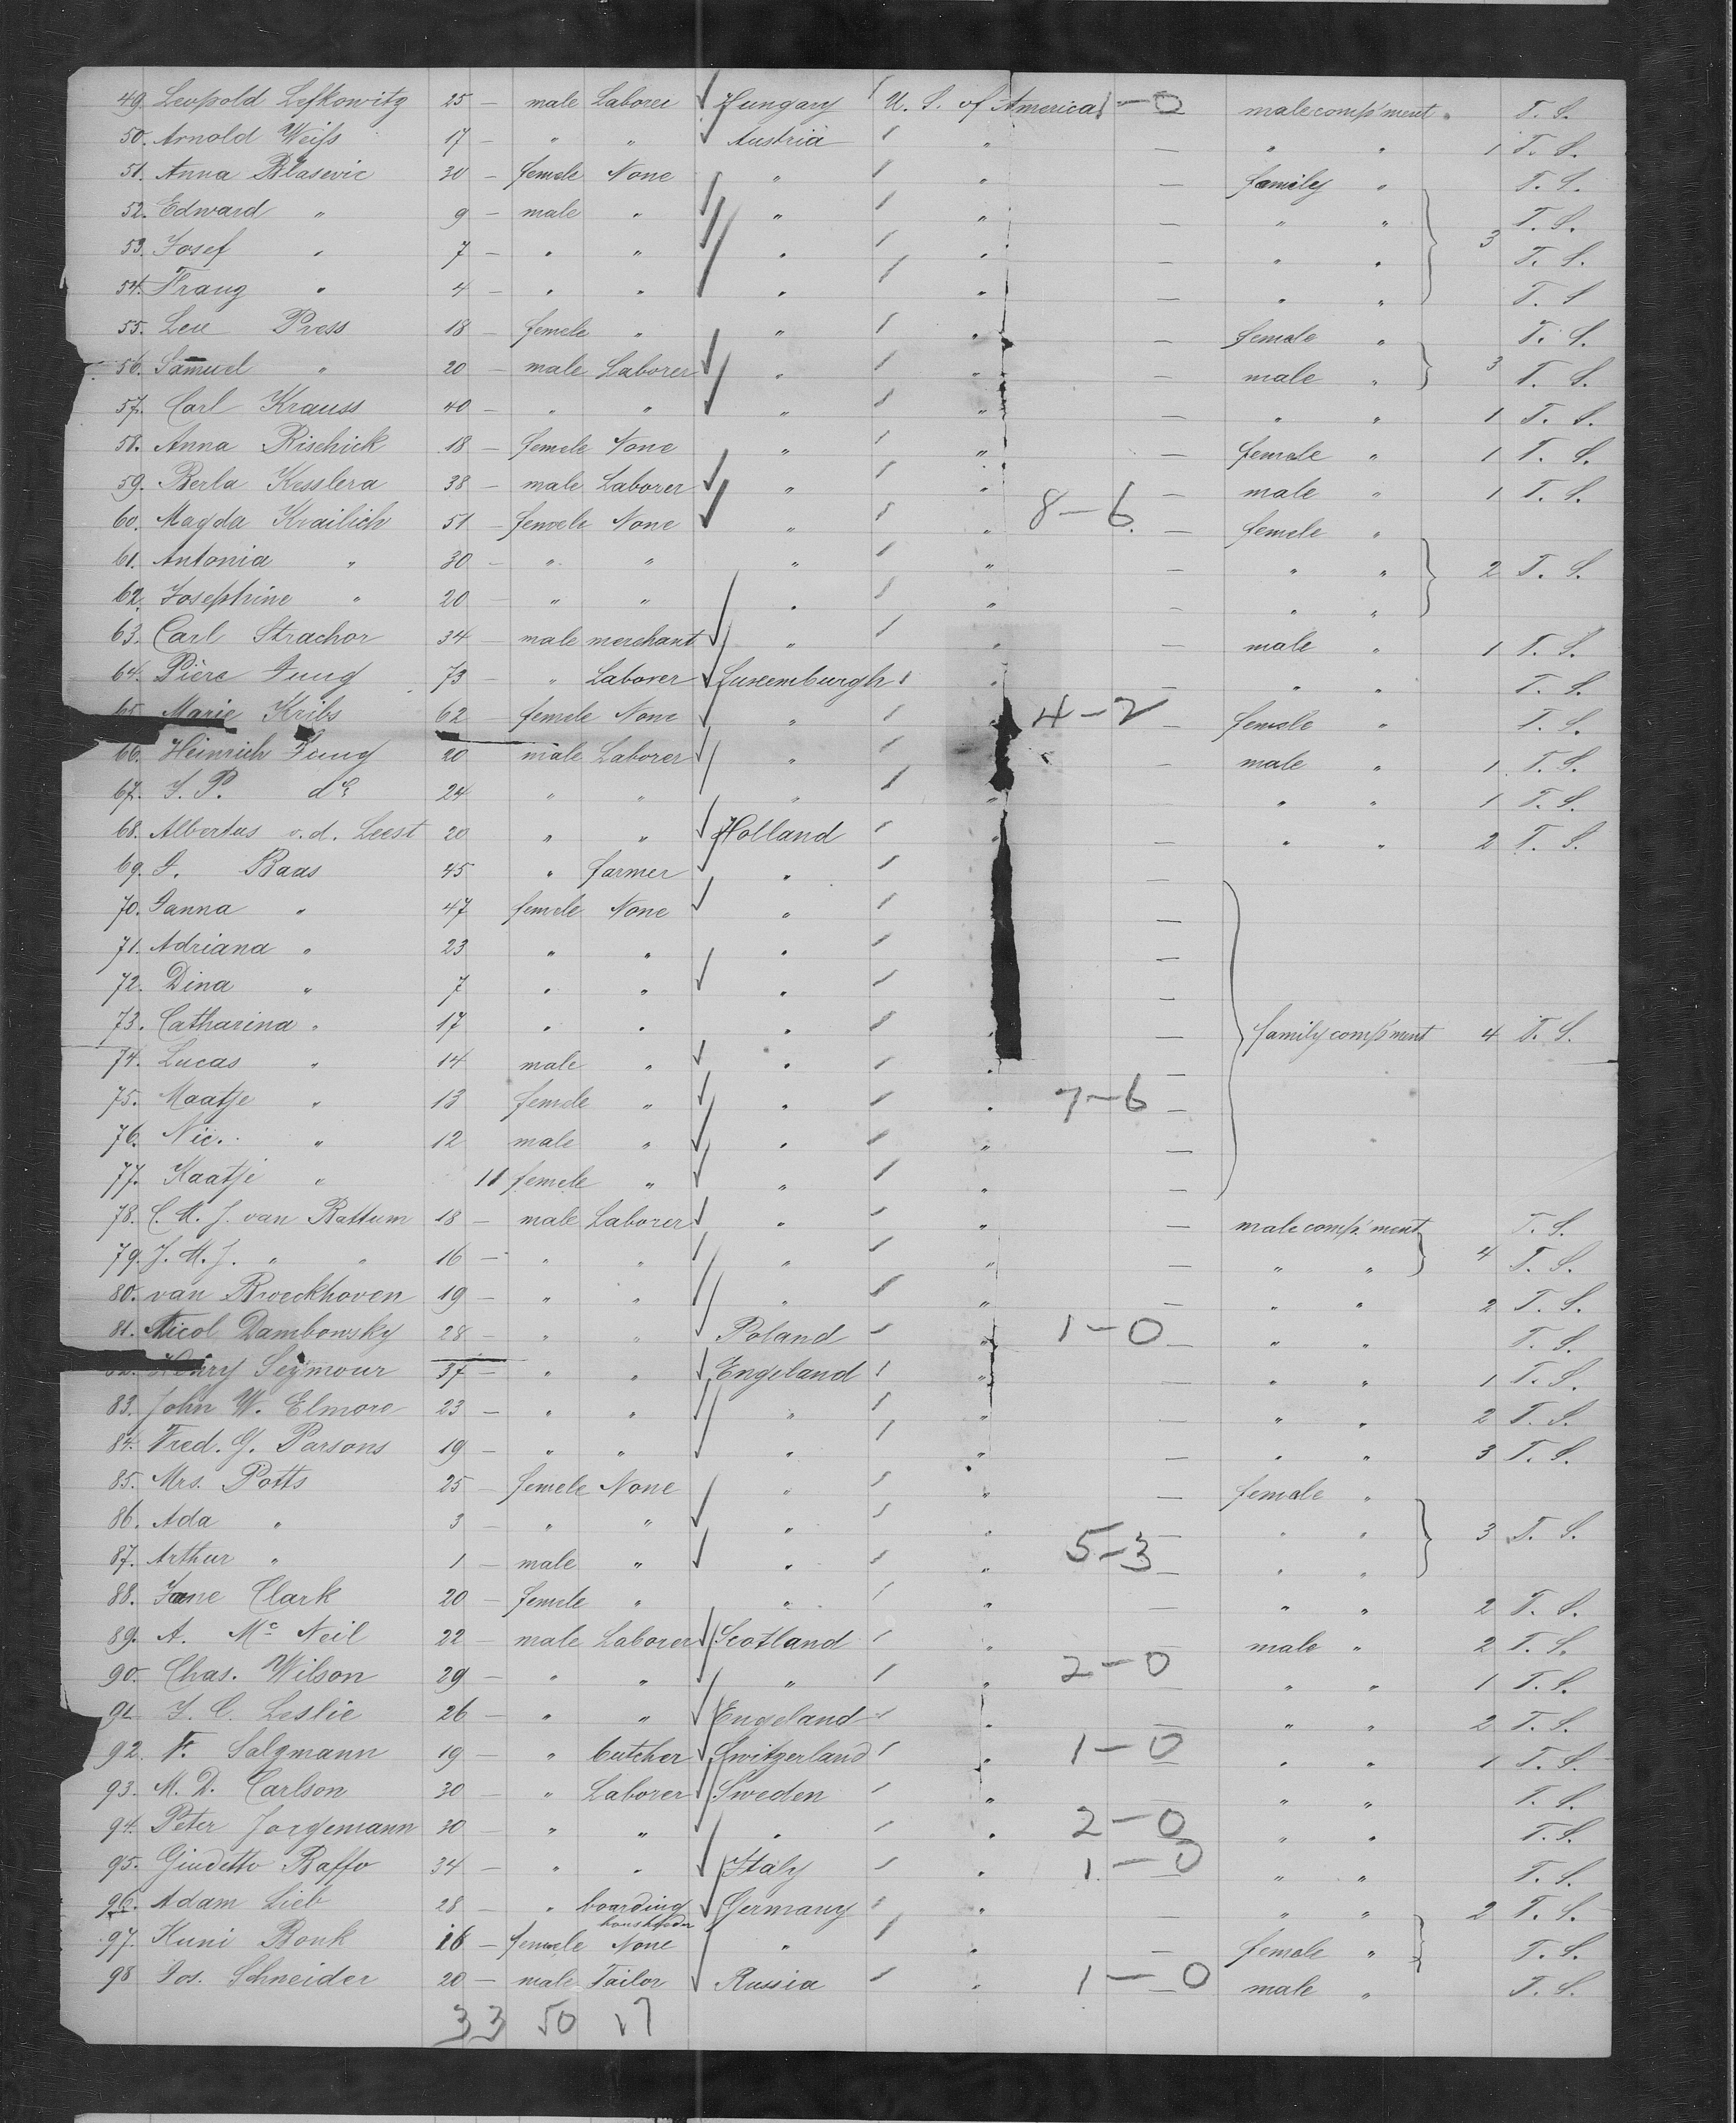 49. Leopold Lefkowitz 25 — male Laborer Hungary U. S. of America — 0 male comp'ment " T. S.
50. Arnold Weiss 17 — " " Austria " — " " 1 T. S.
51. Anna Blasevic 30 — female None " " — family " T. S.
52. Edward " 9 — male " " " — " " T. S.
53. Josef " 7 — " " " " — " " 3 T. S.
54. Franz " 4 — " " " " — " " T. S
55. Leu Press 18 — female " " " — female " T. S.
56. Samuel " 20 — male Laborer " " — male " 3 T. S.
57. Carl Krauss 40 — " " " " — " " 1 T. S.
58. Anna Rischick 18 — female None " " — female " 1 T. S.
59. Berla Kesslera 38 — male Laborer " " — male " 1 T. S.
60. Magda Krailich 51 — female None " " 8—6 — female "
61. Antonia " 30 — " " " " — " " 2 T. S.
62. Josephine " 20 — " " " " — " "
63. Carl Strachor 34 — male merchant " " — male " 1 T. S.
64. Pière Jung 73 — " Laborer Luxemburgh " — " " T. S.
65. Marie Kribs 62 — female None " " 4—2 — female " T. S.
66. Heinrich Jung 20 male Laborer " — male " 1 T. S.
67. J. P. do 24 " " " " " " 1 T. S.
68. Albertus v.d. Leest 20 " " Holland " — " " 2 T. S.
69. J. Baas 45 " farmer " —
70. Janna " 47 female None " —
71. Adriana " 23 " " " —
72. Dina " 7 " " " —
73. Catharina " 17 " " " " — family comp'ment 4 T. S.
74. Lucas " 14 male " " " —
75. Maatje " 13 female " " " 7—6 —
76. Nic. " 12 male " " " —
77. Kaatje " 11 female " " " —
78. C. M. J. van Rattum 18 — male Laborer " " — male comp'ment T. S.
79. J. M. J. " " 16 — " " " " — " " 4 T. S.
80. van Broeckhoven 19 — " " " " — " " 2 T. S.
81. Nicol Dambowsky 28 — " " Poland " 1—0 — " " T. S.
Henry Seymour 37 — " " Engeland " — " " 1 T. S.
83. John W. Elmore 23 — " " " " — " " 2 T. S.
84. Fred. G. Parsons 19 — " " " " — " " 3 T. S.
85. Mrs. Potts 25 — female None " " — female "
86. Ada " 3 — " " " " — " " 3 T. S.
87. Arthur " 1 — male " " " 5—3 — " "
88. Jane Clark 20 — female " " " — " " 2 T. S.
89. A. Mc Neil 22 — male Laborer Scotland " — male " 2 T. S.
90. Chas. Wilson 29 — " " " " 2—0 — " " 1 T. S.
91. J. C. Leslie 26 — " " Engeland " — " " 2 T. S.
92. F. Salzmann 19 — " butcher Switzerland " 1—0 — " " 1 T. S.
93. M. D. Carlson 30 — " Laborer Sweden " " " T. S.
94. Peter Jorgemann 30 — " " " " 2—0 " " T. S.
95. Giudetto Raffo 34 — " " Italy " 1—0 — " " T. S.
96. Adam Lieb 28 — " boarding Germany " — " " 2 T. S.
97. Kuni Bouk 16 — female None " " — female " T. S.
98 Jos. Schneider 20 — male Tailor Russia " 1—0 — male " T. S.
33 50 17